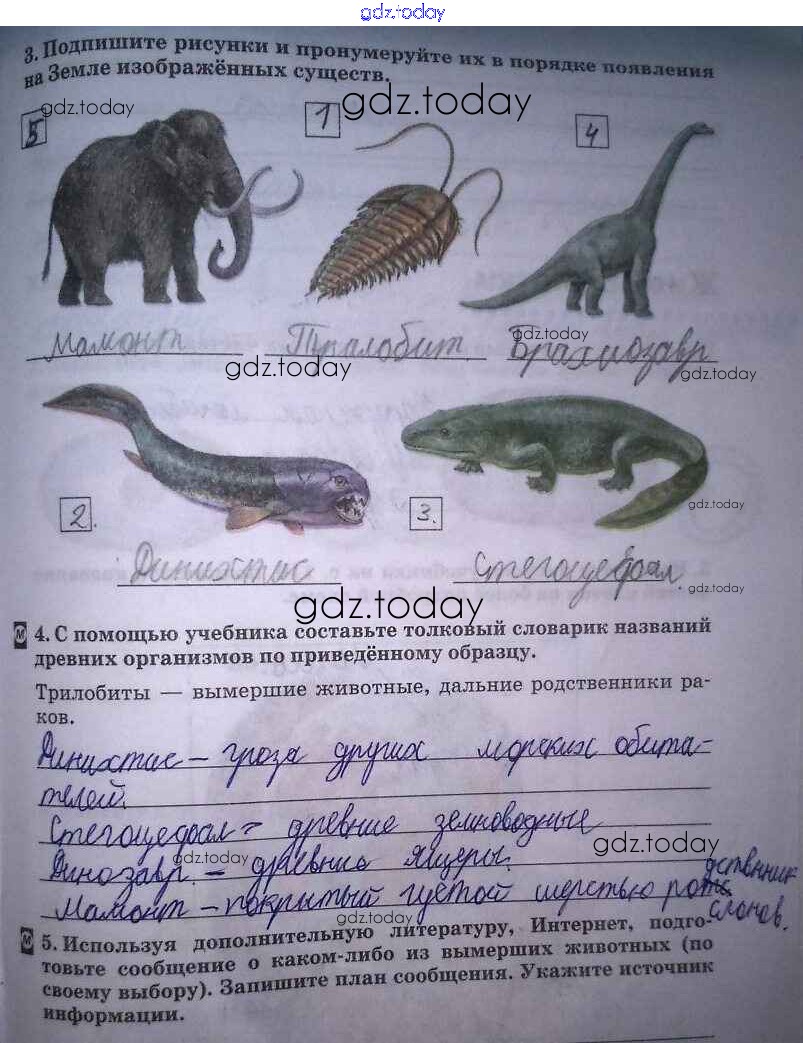 gdz.today
3. Подпишите рисунки и пронумеруйте их в порядке появления
на Земле изображённых существ.
gdz.today
gdz.today
5
1
4
gdz.today
Мамонт Трилобит Брахиозавр
gdz.today
gdz.today
gdz.today
2.
3.
Динихтис Стегоцефал
gdz.today
gdz.today
4. С помощью учебника составьте толковый словарик названий
древних организмов по приведённому образцу.
Трилобиты — вымершие животные, дальние родственники ра-
ков.
Динихтис – гроза других морских обита-
телей.
Стегоцефал – древние земноводные
gdz.today
Динозавр – древние ящеры.
gdz.today
Мамонт – покрытый густой шерстью родственник
слонов.
gdz.today
5. Используя дополнительную литературу, Интернет, подго-
товьте сообщение о каком-либо из вымерших животных (по
своему выбору). Запишите план сообщения. Укажите источник
информации.